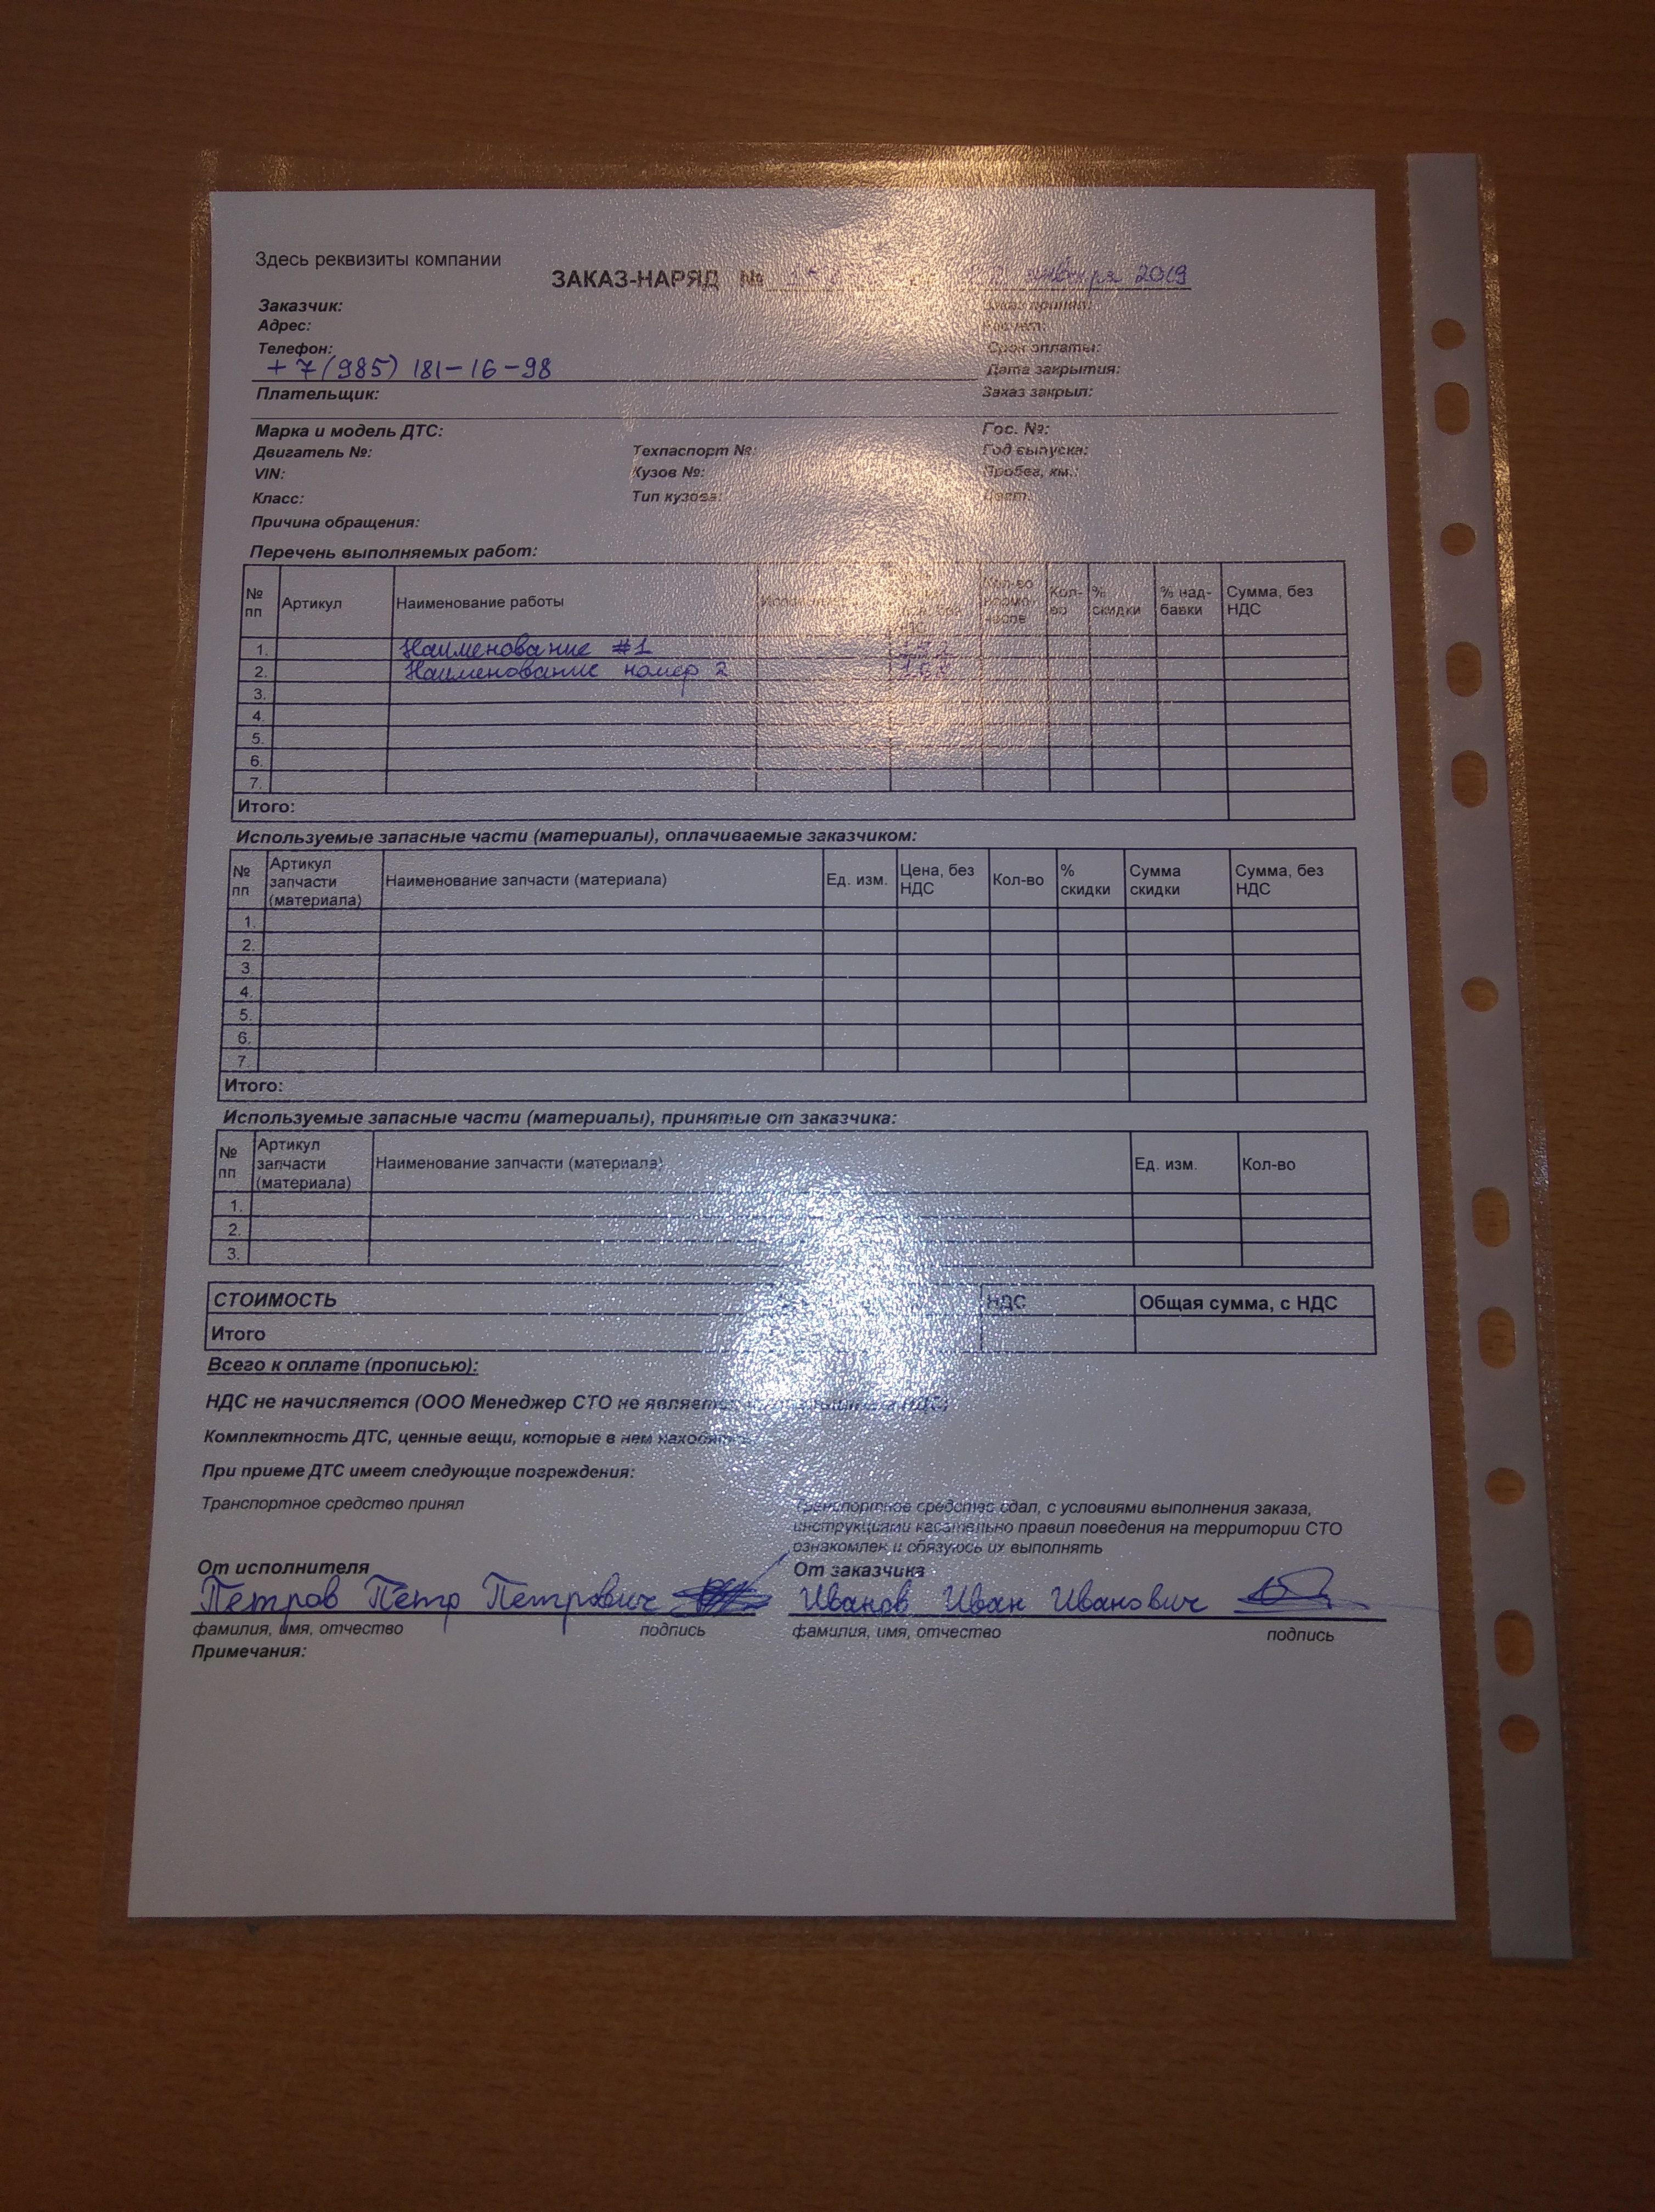 Здесь реквизиты компании
ЗАКАЗ-НАРЯД № января 2019
Заказчик: Заказ принял:
Адрес: Расчет:
Телефон: Срок оплаты:
+7(985) 181-16-98 Дата закрытия:
Плательщик: Заказ закрыл:
Марка и модель ДТС: Гос. №:
Двигатель №: Техпаспорт №: Год выпуска:
VIN: Кузов №: Пробег, км.:
Класс: Тип кузова: Цвет:
Причина обращения:
Перечень выполняемых работ:
№ пп Артикул Наименование работы Кол-во % скидки % над-бавки Сумма, без НДС
1. Наименование #1
2. Наименование номер 2
3.
4.
5.
6.
7.
Итого:
Используемые запасные части (материалы), оплачиваемые заказчиком:
№ пп Артикул запчасти (материала) Наименование запчасти (материала) Ед. изм. Цена, без НДС Кол-во % скидки Сумма скидки Сумма, без НДС
1.
2.
3.
4.
5.
6.
7.
Итого:
Используемые запасные части (материалы), принятые от заказчика:
№ пп Артикул запчасти (материала) Наименование запчасти (материала) Ед. изм. Кол-во
1.
2.
3.
СТОИМОСТЬ НДС Общая сумма, с НДС
Итого
Всего к оплате (прописью):
НДС не начисляется (ООО Менеджер СТО не является НДС)
Комплектность ДТС, ценные вещи, которые в нем находятся
При приеме ДТС имеет следующие погреждения:
Транспортное средство принял
Транспортное средство сдал, с условиями выполнения заказа,
инструкциями касательно правил поведения на территории СТО
ознакомлен и обязуюсь их выполнять
От исполнителя От заказчика
Петров Петр Петрович Иванов Иван Иванович
фамилия, имя, отчество подпись фамилия, имя, отчество подпись
Примечания: